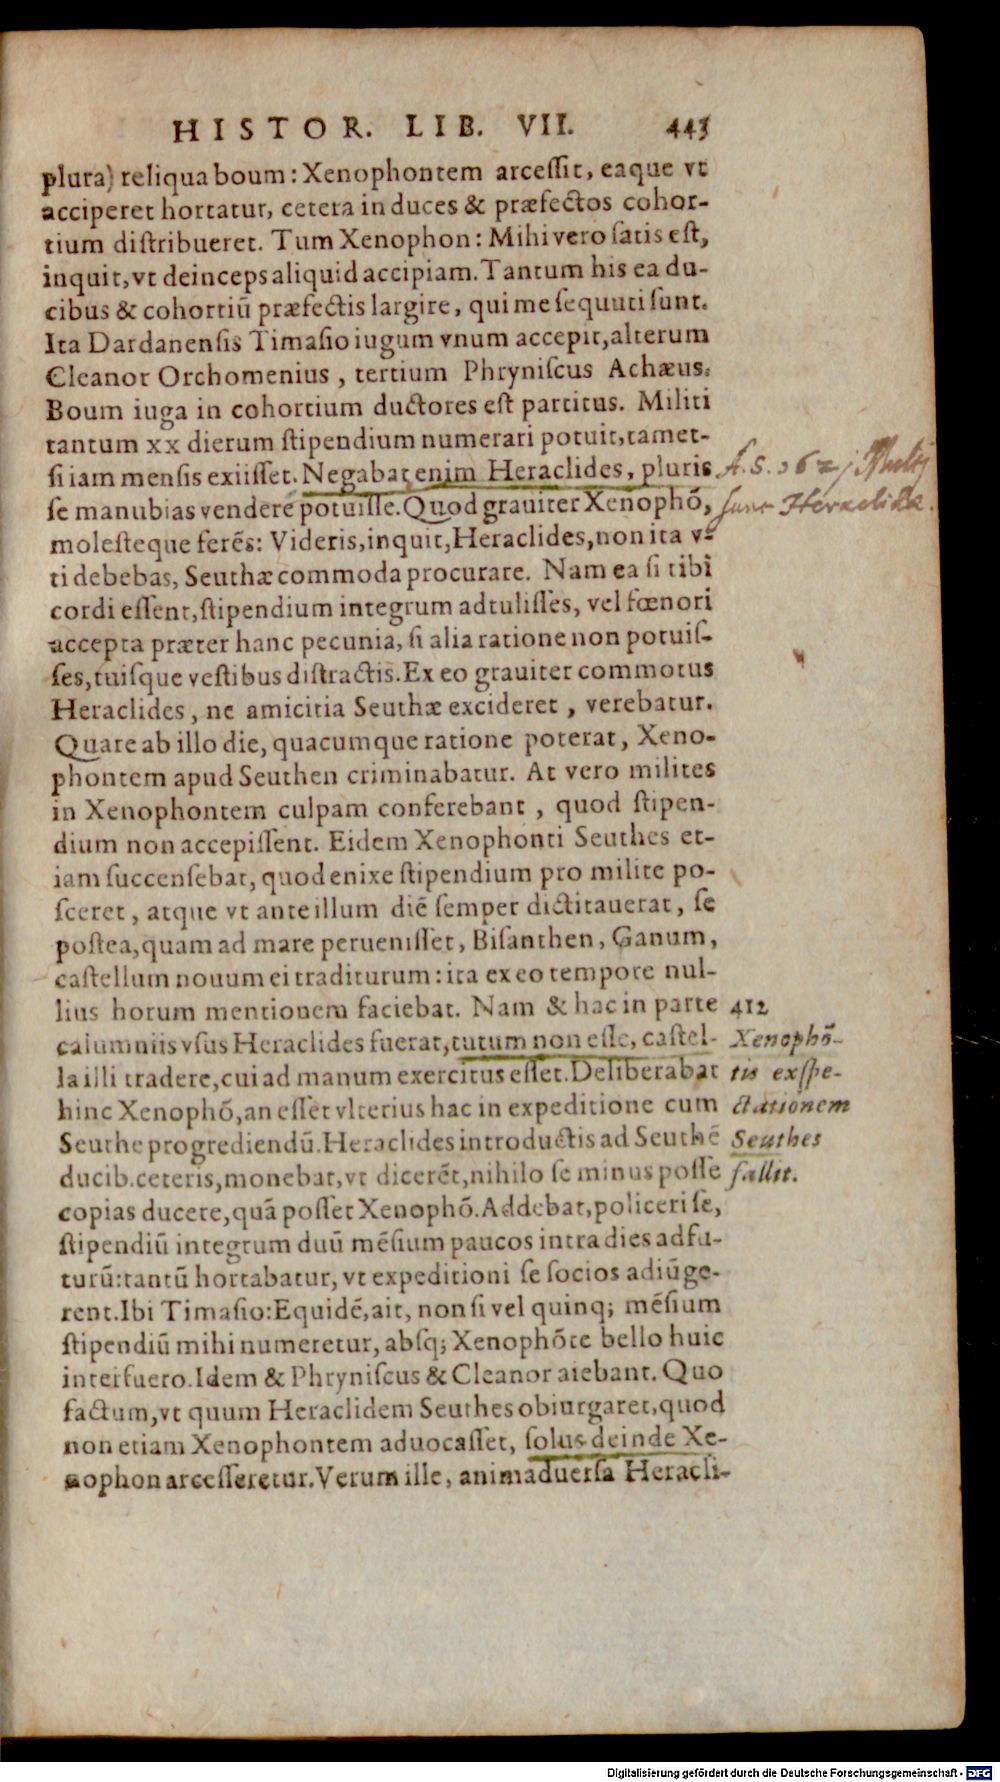 HISTOR. LIB. VII. 443
plura) reliqua boum: Xenophontem arcessit, eaque vt
acciperet hortatur, cetera in duces & præfectos cohor-
tium distribueret. Tum Xenophon: Mihi vero satis est,
inquit, vt deinceps aliquid accipiam. Tantum his ea du-
cibus & cohortiũ præfectis largire, qui me sequuti sunt.
Ita Dardanensis Timasio iugum vnum accepit, alterum
Cleanor Orchomenius, tertium Phryniscus Achæus.
Boum iuga in cohortium ductores est partitus. Militi
tantum xx dierum stipendium numerari potuit, tamet-
si iam mensis exiisset. Negabat enim Heraclides, pluris
se manubias vendere potuisse. Quod grauiter Xenophõ,
molesteque ferẽs: Videris, inquit, Heraclides, non ita v-
ti debebas, Seuthæ commoda procurare. Nam ea si tibi
cordi essent, stipendium integrum adtulisses, vel fœnori
accepta præter hanc pecunia, si alia ratione non potuis-
ses, tuisque vestibus distractis. Ex eo grauiter commotus
Heraclides, ne amicitia Seuthæ excideret, verebatur.
Quare ab illo die, quacumque ratione poterat, Xeno-
phontem apud Seuthen criminabatur. At vero milites
in Xenophontem culpam conferebant, quod stipen-
dium non accepissent. Eidem Xenophonti Seuthes et-
iam succensebat, quod enixe stipendium pro milite po-
sceret, atque vt ante illum diẽ semper dictitauerat, se
postea, quam ad mare peruenisset, Bisanthen, Ganum,
castellum nouum ei traditurum: ita ex eo tempore nul-
lius horum mentionem faciebat. Nam & hac in parte
calumniis vsus Heraclides fuerat, tutum non esse, castel-
la illi tradere, cui ad manum exercitus esset. Deliberabat
hinc Xenophõ, an esset vlterius hac in expeditione cum
Seuthe progrediendũ. Heraclides introductis ad Seuthẽ
ducib. ceteris, monebat, vt dicerẽt, nihilo se minus posse
copias ducere, quã posset Xenophõ. Addebat, policeri se,
stipendiũ integrum duũ mẽsium paucos intra dies adfu-
turũ: tantũ hortabatur, vt expeditioni se socios adiũge-
rent. Ibi Timasio: Equidẽ, ait, non si vel quinq; mẽsium
stipendiũ mihi numeretur, absq; Xenophõte bello huic
interfuero. Idem & Phryniscus & Cleanor aiebant. Quo
factum, vt quum Heraclidem Seuthes obiurgaret, quod
non etiam Xenophontem aduocasset, solus deinde Xe-
nophon arcesseretur. Verum ille, animaduersa Heracli-
A. S. 362 / Multi
sunt Heraclidæ.
412
Xenophõ-
tis exspe-
ctationem
Seuthes
fallit.
Digitalisierung gefördert durch die Deutsche Forschungsgemeinschaft - DFG